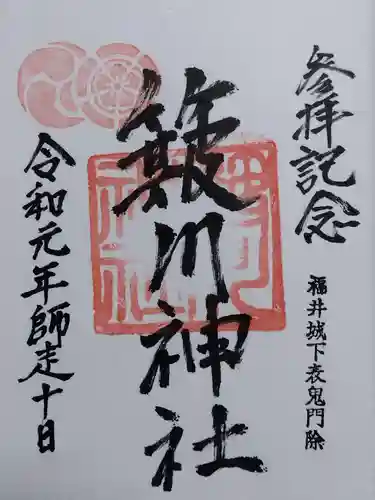 參拝記念
福井城下表鬼門除
簸川神社
令和元年師走十日